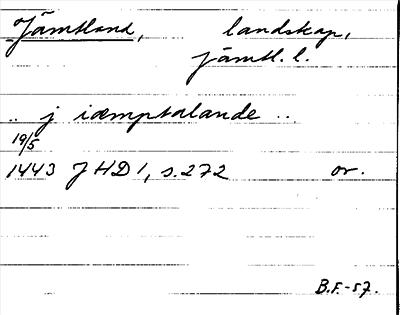 Jämtland, landskap,
jämtl. l.
.. j iæmptalande ..
19/5
1443 JHD 1, s. 272 or.
B.F.-57.